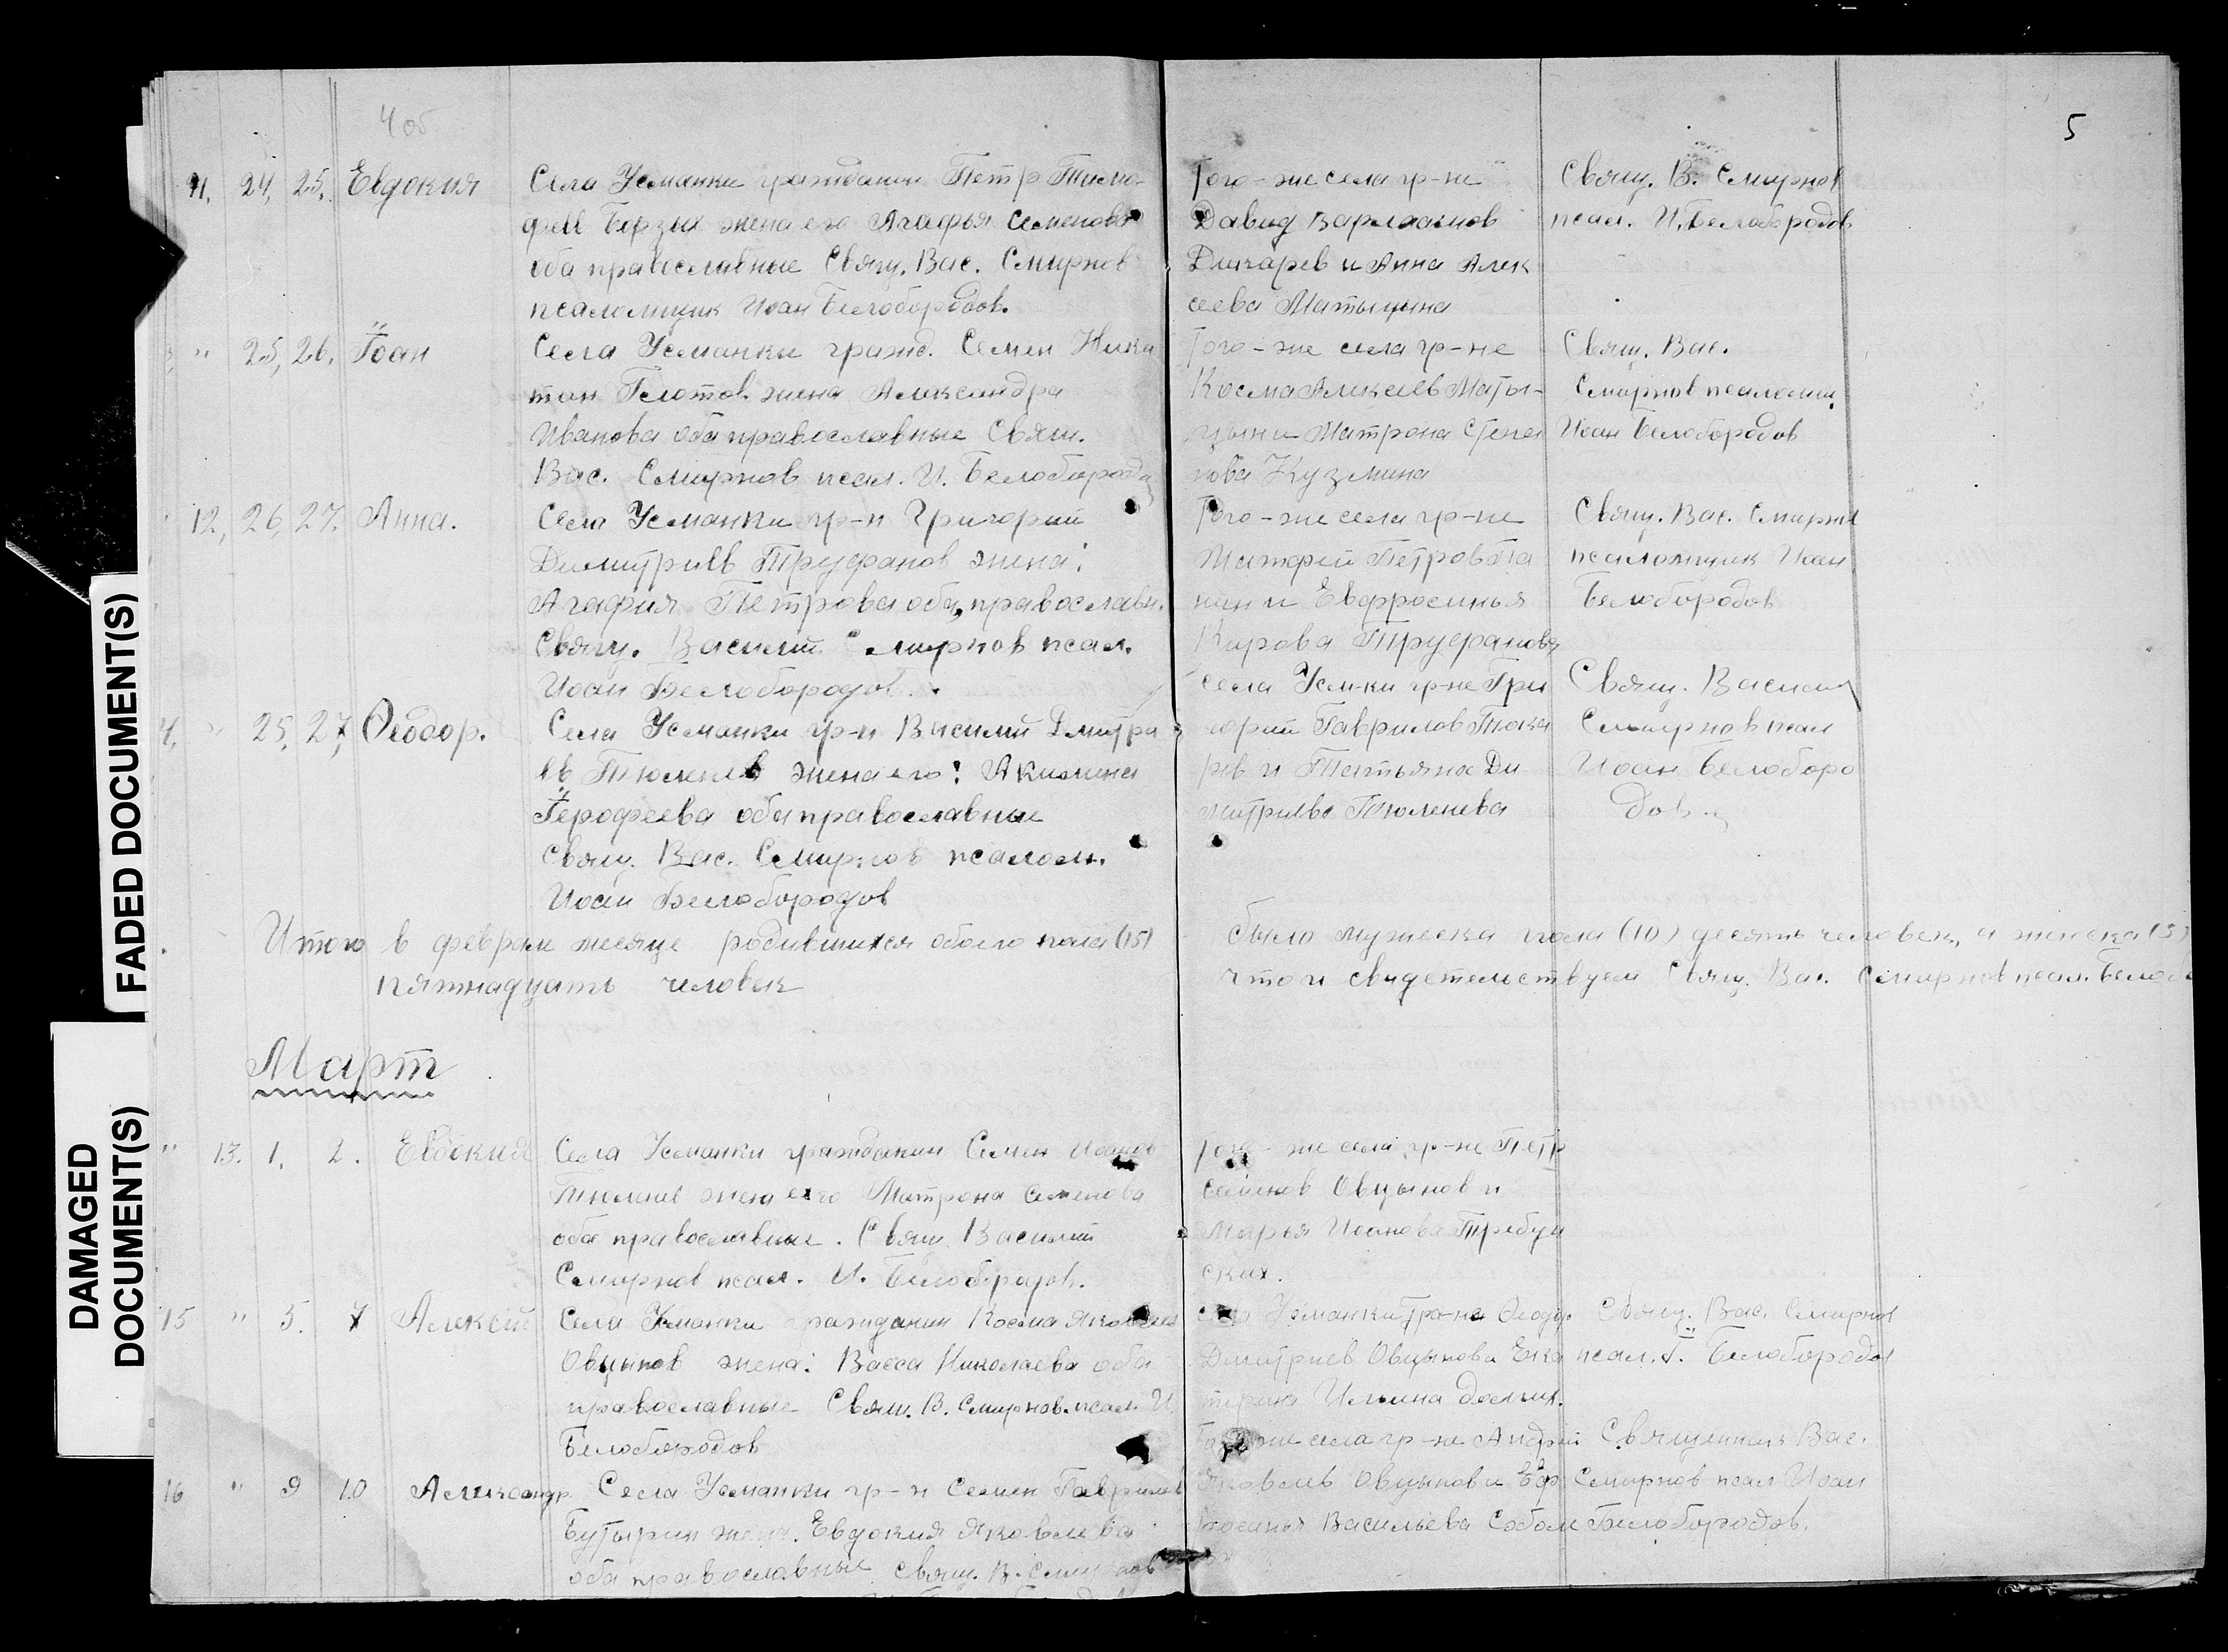 4 об
5
11, 24, 25, Евдокия
Села Усманки гражданин Петр Тимо-
феев Борзых жена его Агафья Семенова
оба православные Свящ. Вас. Смирнов
псаломщик Иоан Белобородов.
Того-же села гр-не
Давид Варлаамов
Дичарев и Анна Алек
сеева Матыцина
Свящ. В. Смирнов
псал. И. Белобородов
" 25, 26, Їоан
Села Усманки гражд. Семен Ники
тин Глотов жена Александра
Иванова оба православные Свящ.
Вас. Смирнов псал. И. Белобородов
Того-же села гр-не
Косма Алексеев Маты-
цын и Матрона Степа
нова Кузмина
Свящ. Вас.
Смирнов псаломщ.
Иоан Белобородов
12, 26, 27. Анна.
Села Усманки гр-н Григорий
Димитриев Труфанов жена:
Агафия Петрова оба, православн.
Свящ. Василий Смирнов псал.
Иоан Белобородов.
Того-же села гр-не
Матфей Петров
и Евфросинья
Кирова Труфанова
Свящ. Вас. Смирнов
псаломщик Иоан
Белобородов
4, " 25, 27, Ѳеодор.
Села Усманки гр-н Василий Дмитри
ев Тюленев жена его: Акилина
Їерофеева оба православные
свящ. Вас. Смирнов псалом.
Иоан Белобородов
села Усм-ки гр-не Гри
горий Гаврилов Тока
рев и Татьяна Ди
митриева Тюленева
Свящ. Василий
Смирнов псал
Иоан Белоборо
дов.
Итого в феврале месяце родившихся обоего пола (15)
пятнадцать человек
Было мужеска пола (10) десять человек, а женска (5)
что и свидетельствуем Свящ. Вас. Смирнов псал. Бело
Март
" 13. 1, 2. Евдокия
Села Усманки гражданин Семен Иоанов
жена его Матрона Семенова
оба православные. Свящ. Василий
Смирнов псал. И. Белобородов.
Того-же села гр-не Петр
Семенов Овцынов и
Марья Иоанова Требун
ских.
15 " 5. 7 Алексїй
Села Усманки гражданин Косма Яковлев
Овцынов жена: Васса Николаева оба
православные Свящ. В. Смирнов. псал. И.
Белобородов
села Усманки гр-не Ѳеодор
Димитриев Овцынов и Ека
терина Ильина
Свящ. Вас. Смирнов
псал. Ї. Белобородов
16 " 9 10 Александр.
Села Усманки гр-н Семен Гаврилов
Бутырин жена. Евдокия Яковлева
оба православные свящ. В. Смирнов
Того же села гр-не Андрей
Яковлев Овцынов и Еф
росинья Васильева
Священник Вас.
Смирнов псал Иоан
Белобородов.
FADED DOCUMENT(S)
DAMAGED
DOCUMENT(S)